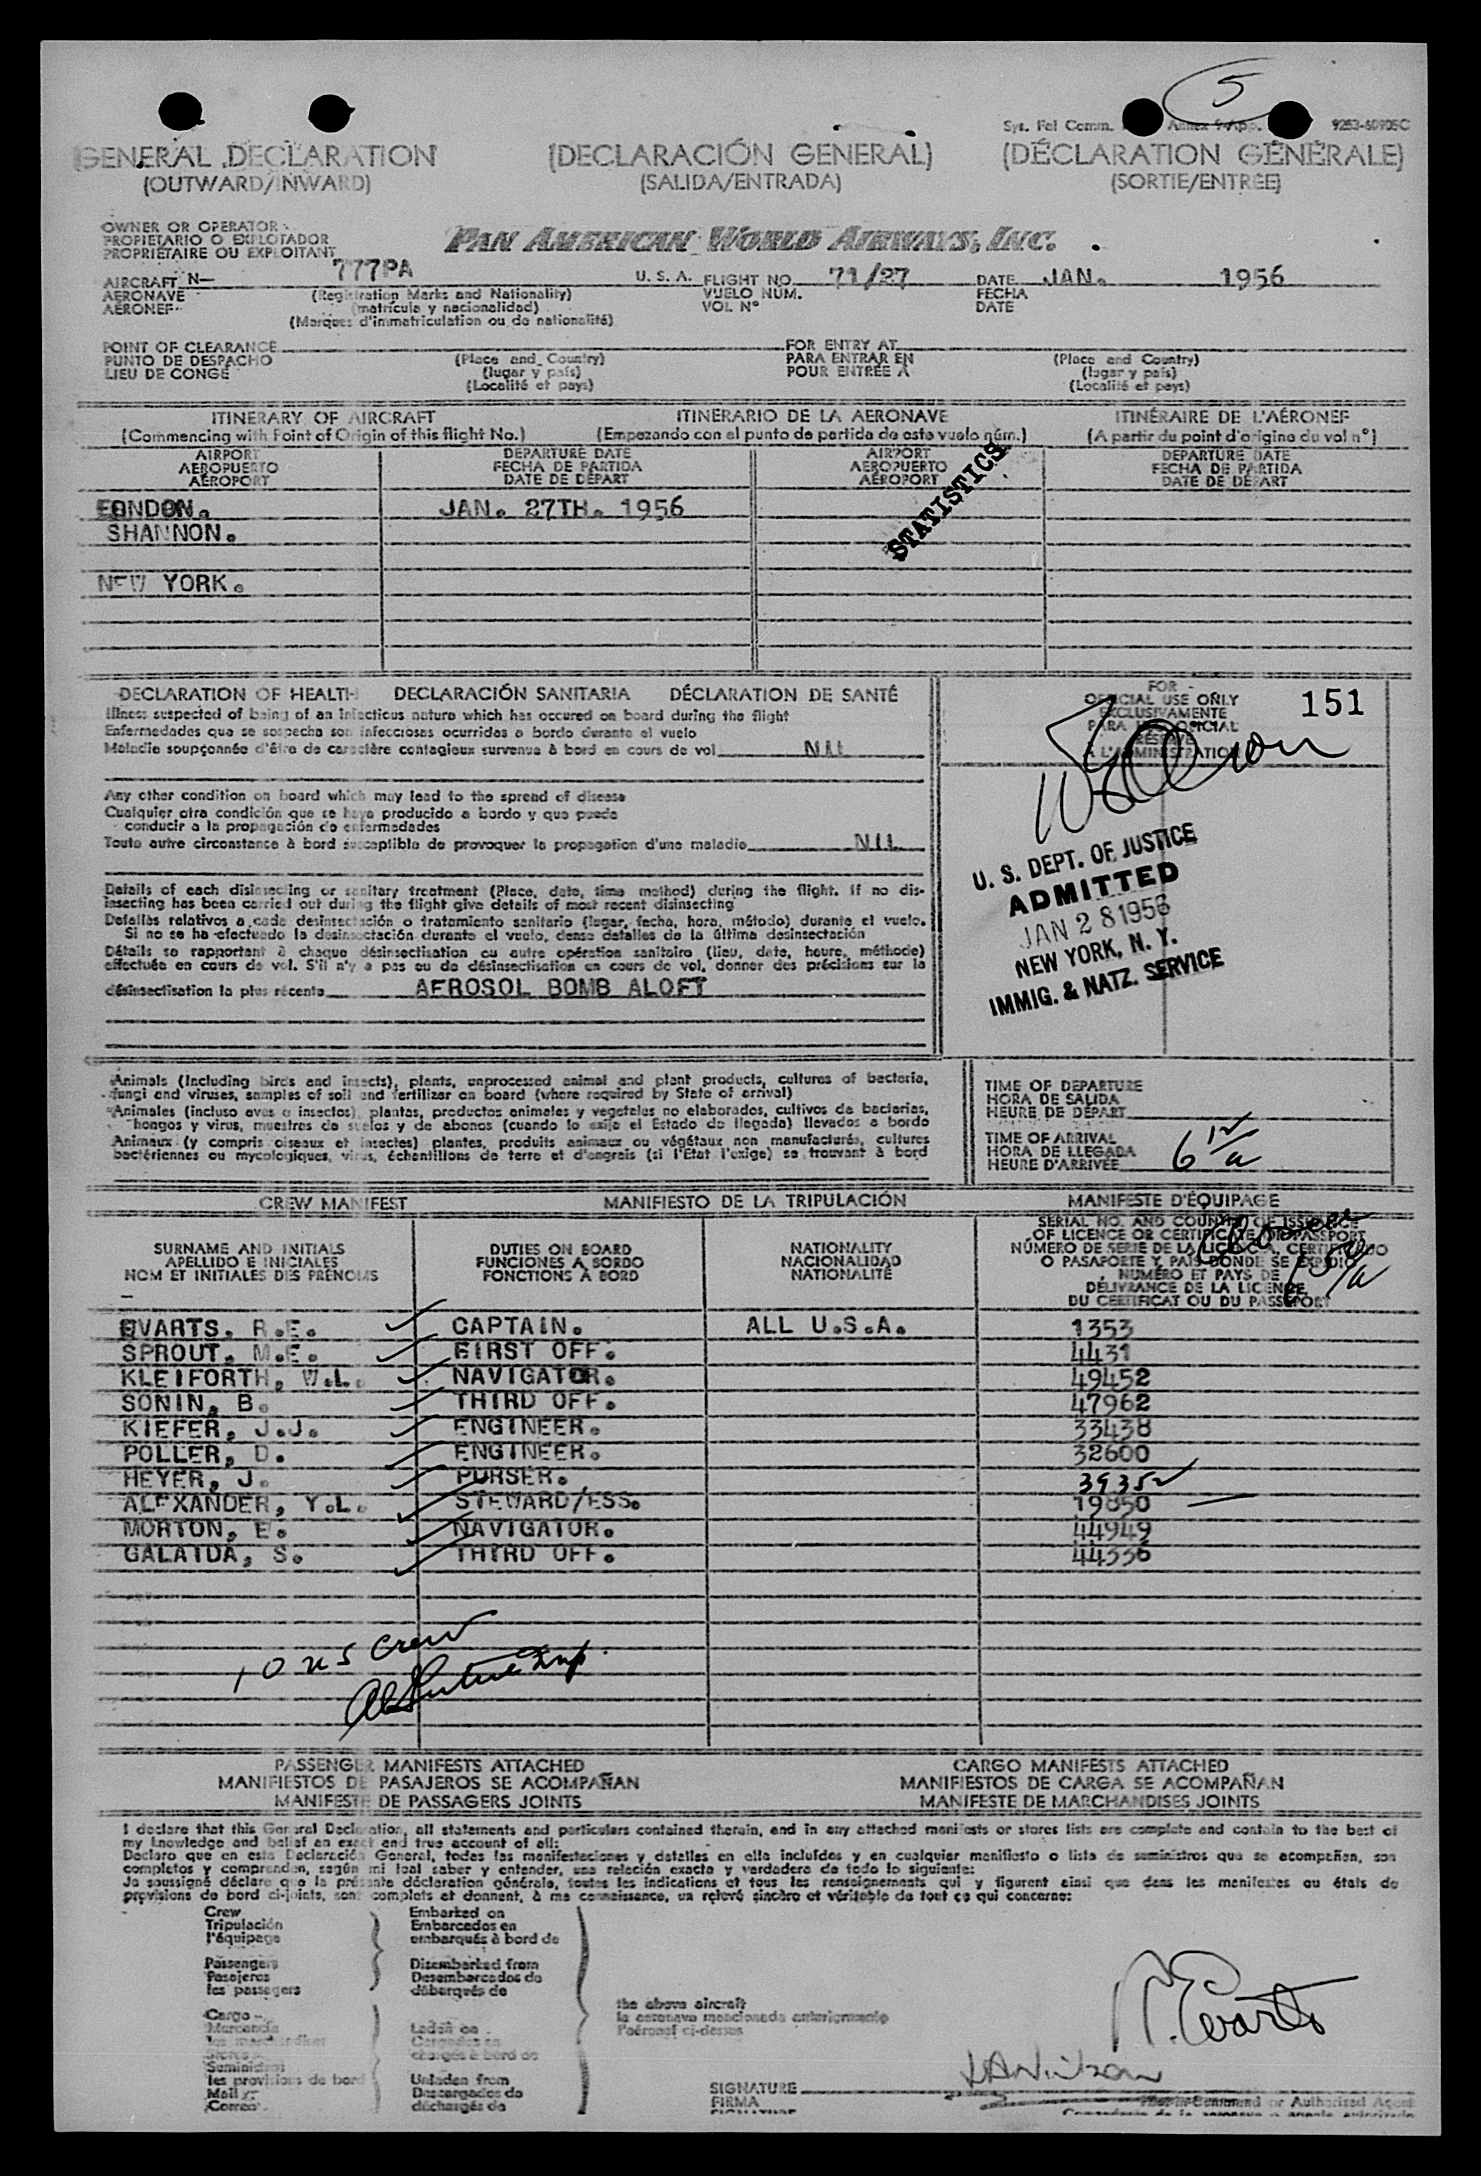 5
Sys. Fel Comm. Annex 9-App. 9263-60905C
GENERAL DECLARATION (DECLARACIÓN GENERAL) (DÉCLARATION GÉNÉRALE)
(OUTWARD/INWARD) (SALIDA/ENTRADA) (SORTIE/ENTRÉE)
OWNER OR OPERATOR
PROPIETARIO O EXPLOTADOR
PROPRIÉTAIRE OU EXPLOITANT
PAN AMERICAN WORLD AIRWAYS, INC.
AIRCRAFT N— 777PA U. S. A. FLIGHT NO. 71/27 DATE JAN. 1956
AERONAVE (Registration Marks and Nationality) VUELO NÚM. FECHA
AÉRONEF (matrícula y nacionalidad) VOL N° DATE
(Marques d'immatriculation ou de nationalité)
POINT OF CLEARANCE FOR ENTRY AT
PUNTO DE DESPACHO (Place and Country) PARA ENTRAR EN (Place and Country)
LIEU DE CONGÉ (lugar y país) POUR ENTRÉE À (lugar y país)
(Localité et pays) (Localité et pays)
ITINERARY OF AIRCRAFT ITINERARIO DE LA AERONAVE ITINÉRAIRE DE L'AÉRONEF
(Commencing with Point of Origin of this flight No.) (Empezando con el punto de partida de este vuelo núm.) (A partir du point d'origine du vol n°)
AIRPORT DEPARTURE DATE AIRPORT DEPARTURE DATE
AEROPUERTO FECHA DE PARTIDA AEROPUERTO FECHA DE PARTIDA
AÉROPORT DATE DE DÉPART AÉROPORT DATE DE DÉPART
STATISTICS
LONDON. JAN. 27TH. 1956
SHANNON.
NEW YORK.
DECLARATION OF HEALTH DECLARACIÓN SANITARIA DÉCLARATION DE SANTÉ
Illness suspected of being of an infectious nature which has occured on board during the flight
Enfermedades que se sospecha son infecciosas ocurridas a bordo durante el vuelo
Maladie soupçonnée d'être de caractère contagieux survenue à bord en cours de vol NIL
Any other condition on board which may lead to the spread of disease
Cualquier otra condición que se haya producido a bordo y que pueda
conducir a la propagación de enfermedades
Toute autre circonstance à bord susceptible de provoquer la propagation d'une maladie NIL
Details of each disinsecting or sanitary treatment (Place, date, time method) during the flight. If no dis-
insecting has been carried out during the flight give details of most recent disinsecting
Detalles relativos a cada desinsectación o tratamiento sanitario (lugar, fecha, hora, método) durante el vuelo.
Si no se ha efectuado la desinsectación durante el vuelo, dense detalles de la última desinsectación
Détails se rapportant à chaque désinsectisation ou autre opération sanitaire (lieu, date, heure, méthode)
effectuée en cours de vol. S'il n'y a pas eu de désinsectisation en cours de vol, donner des précisions sur la
désinsectisation la plus récente AEROSOL BOMB ALOFT
FOR
OFFICIAL USE ONLY 151
EXCLUSIVAMENTE
PARA USO OFICIAL
RÉSERVÉ
À L'ADMINISTRATION
U. S. DEPT. OF JUSTICE
ADMITTED
JAN 28 1956
NEW YORK, N. Y.
IMMIG. & NATZ. SERVICE
Animals (Including birds and insects), plants, unprocessed animal and plant products, cultures of bacteria,
fungi and viruses, samples of soil and fertilizer on board (where required by State of arrival)
Animales (incluso aves e insectos), plantas, productos animales y vegetales no elaborados, cultivos de bacterias,
hongos y virus, muestras de suelos y de abonos (cuando lo exija el Estado de llegada) llevados a bordo
Animaux (y compris oiseaux et insectes) plantes, produits animaux ou végétaux non manufacturés, cultures
bactériennes ou mycologiques, virus, échantillons de terre et d'engrais (si l'État l'exige) se trouvant à bord
TIME OF DEPARTURE
HORA DE SALIDA
HEURE DE DÉPART
TIME OF ARRIVAL
HORA DE LLEGADA
HEURE D'ARRIVÉE 6 12/a
CREW MANIFEST MANIFIESTO DE LA TRIPULACIÓN MANIFESTE D'ÉQUIPAGE
SURNAME AND INITIALS
APELLIDO E INICIALES
NOM ET INITIALES DES PRÉNOMS
DUTIES ON BOARD
FUNCIONES A BORDO
FONCTIONS À BORD
NATIONALITY
NACIONALIDAD
NATIONALITÉ
SERIAL NO. AND COUNTRY OF ISSUANCE
OF LICENCE OR CERTIFICATE OR PASSPORT
NÚMERO DE SERIE DE LA LICENCIA, CERTIFICADO
O PASAPORTE Y PAÍS DONDE SE EXPIDIÓ
NUMÉRO ET PAYS DE
DÉLIVRANCE DE LA LICENCE
DU CERTIFICAT OU DU PASSEPORT
EVARTS, R.E. CAPTAIN. ALL U.S.A. 1353
SPROUT, M.E. FIRST OFF. 4431
KLEIFORTH, W.L. NAVIGATOR. 49452
SONIN, B. THIRD OFF. 47962
KIEFER, J.J. ENGINEER. 33438
POLLER, D. ENGINEER. 32600
HEYER, J. PURSER. 39352
ALEXANDER, Y.L. STEWARD/ESS. 19850
MORTON, E. NAVIGATOR. 44949
GALATDA, S. THIRD OFF. 44336
10 US Crew
PASSENGER MANIFESTS ATTACHED CARGO MANIFESTS ATTACHED
MANIFIESTOS DE PASAJEROS SE ACOMPAÑAN MANIFIESTOS DE CARGA SE ACOMPAÑAN
MANIFESTE DE PASSAGERS JOINTS MANIFESTE DE MARCHANDISES JOINTS
I declare that this General Declaration, all statements and particulars contained therein, and in any attached manifests or stores lists are complete and contain to the best of
my knowledge and belief an exact and true account of all:
Declaro que en esta Declaración General, todas las manifestaciones y detalles en ella incluídos y en cualquier manifiesto o lista de suministros que se acompañen, son
completos y comprenden, según mi leal saber y entender, una relación exacta y verdadera de todo lo siguiente:
Je soussigné déclare que la présente déclaration générale, toutes les indications et tous les renseignements qui y figurent ainsi que dans les manifestes ou états de
provisions de bord ci-joints, sont complets et donnent, à ma connaissance, un relevé sincère et véritable de tout ce qui concerne:
Crew Embarked on
Tripulación Embarcados en
l'équipage embarqués à bord de
Passengers Disembarked from
Pasajeros Desembarcados de
les passagers débarqués de
the above aircraft
la aeronave mencionada anteriormente
l'aéronef ci-dessus
Cargo Laden on
Mercancía Cargados en
les marchandises chargés à bord de
Stores
Suministros
les provisions de bord Unladen from
Mail Descargados de
Correo déchargés de
R. Evarts
SIGNATURE
FIRMA Pilot in Command or Authorized Agent